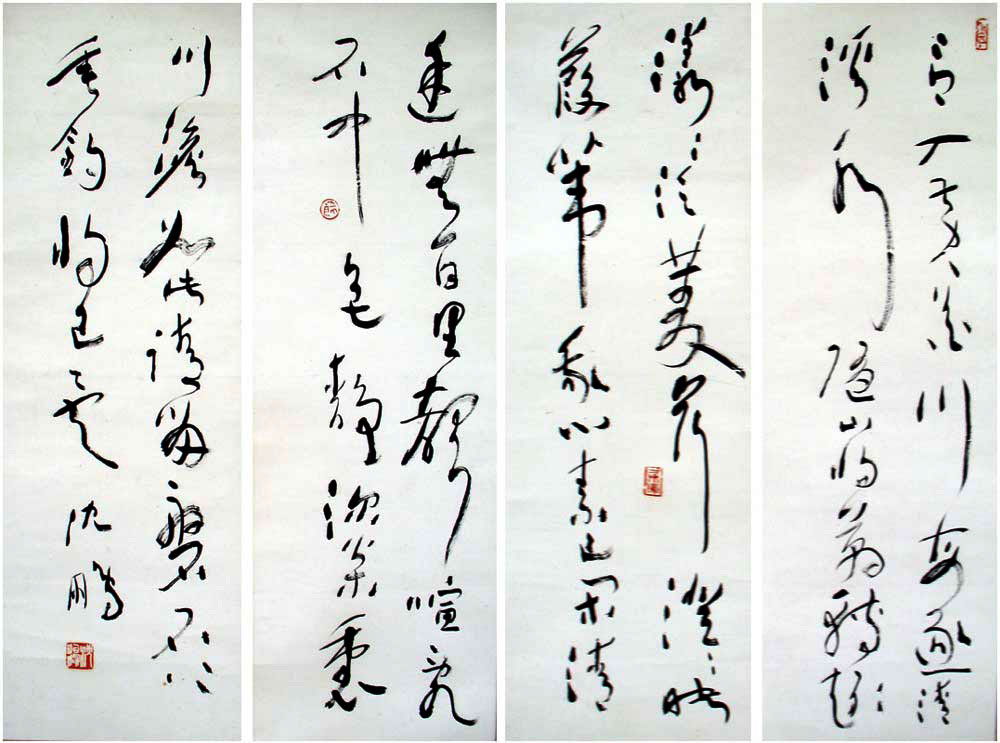 言入黄花川每逐清
溪水随山将萬轉趣
漾漾泛菱荇澄澄映
葭苇我心素已闲清
途無百里聲喧亂
石中色静深松裏
川澹如此請留盤石上
垂钓将已矣 沈鹏